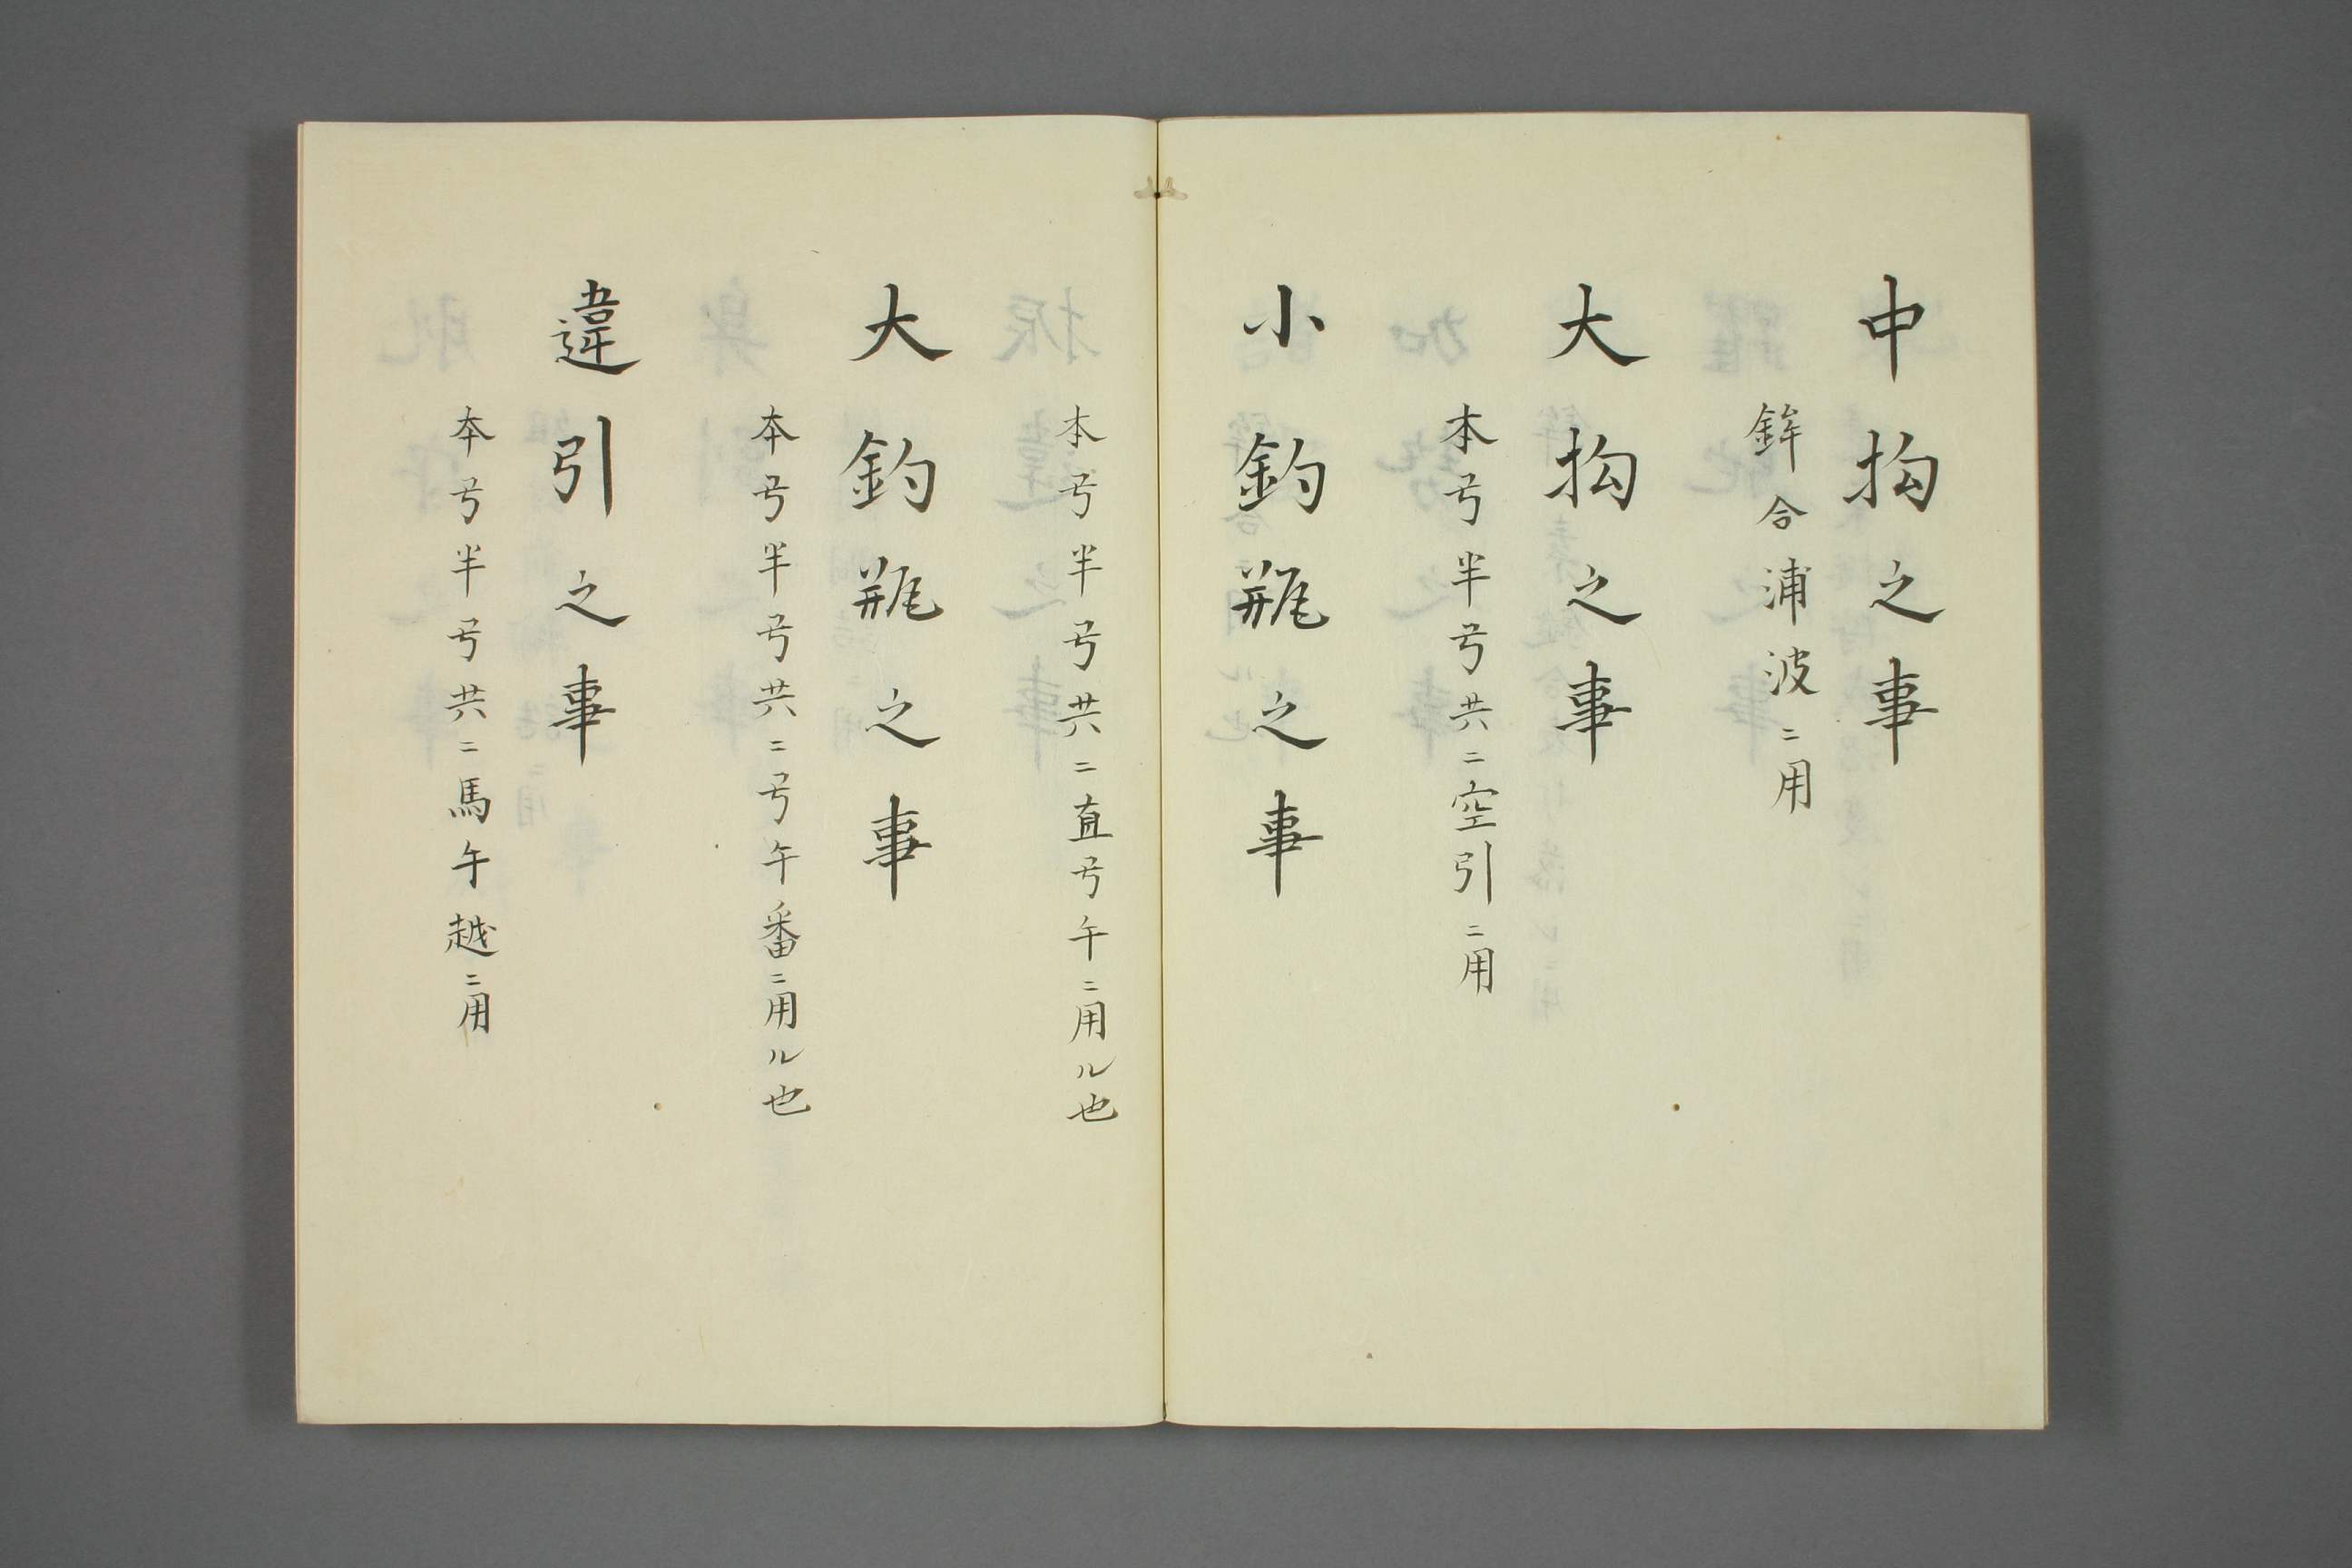 中拘之事
鉾合浦波ニ用
大拘之事
本号半号共ニ空引ニ用
小釣瓶之事
本号半号共ニ直号午ニ用ル也
大釣瓶之事
本号半号共ニ号午番ニ用ル也
違引之事
本号半号共ニ馬午越ニ用